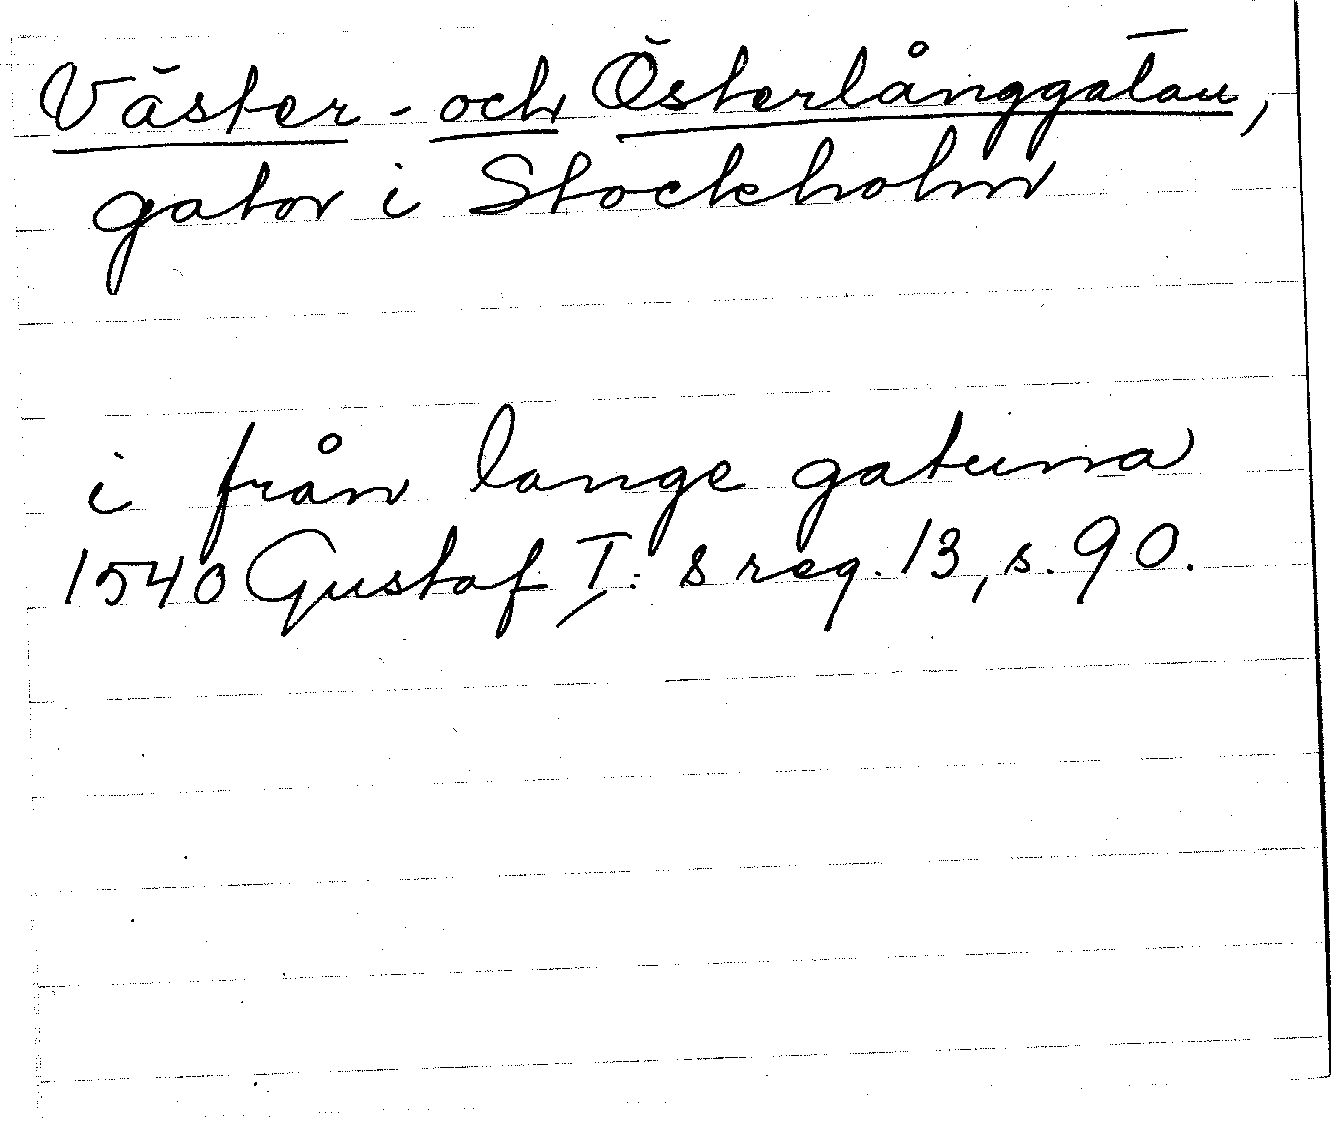 Väster- och Österlånggatan,
gator i Stockholm
i från lange gatuna
1540 Gustaf I:s reg. 13, s. 90.